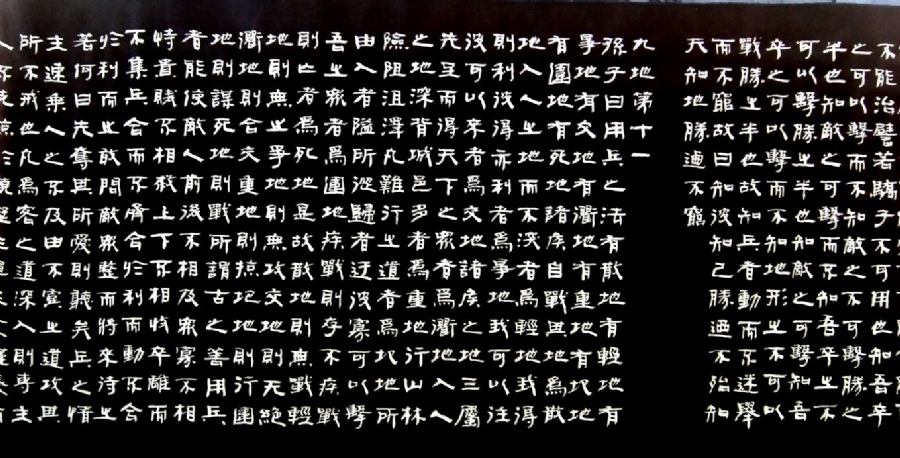 不能治譬若驕子不可用也知吾卒
之可以擊而不知敵之不可擊勝之
半也知敵之可擊而不知吾卒之不
可以擊勝之半也知敵之可擊知吾
卒之可以擊而不知地形之不可以
戰勝之半也故知兵者動而不迷舉
而不窮故曰知彼知己勝迺不殆知
天知地勝迺不窮
九地第十一
孫子曰用兵之法有散地有輕地有
爭地有交地有衢地有重地有圮地
有圍地有死地諸侯自戰其地為散
地入人之地而不深者為輕地我得
則利彼得亦利者為爭地我可以往
彼可以來者為交地諸侯之地三屬
先至而得天下之眾者為衢地入人
之地深背城邑多者為重地行山林
險阻沮澤凡難行之道者為圮地所
由入者隘所從歸者迂彼寡可以擊
吾之眾者為圍地疾戰則存不疾戰
則亡者為死地是故散地則無戰輕
地則無止爭地則無攻交地則無絕
衢地則合交重地則掠圮地則行圍
地則謀死地則戰所謂古之善用兵
者能使敵人前後不相及眾寡不相
恃貴賤不相救上下不相收卒離而
不集兵合而不齊合於利而動不合
於利而止敢問敵眾整而將來待之
若何曰先奪其所愛則聽矣兵之情
主速乘人之不及由不虞之道攻其
所不戒也凡為客之道深入則專主